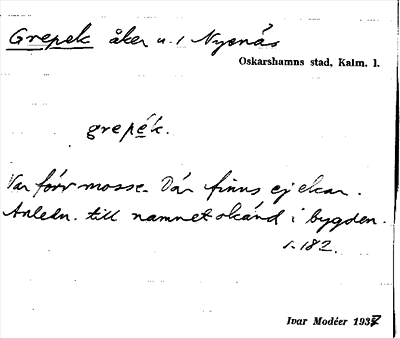 Grepek åker u. 1 Nyenäs
Oskarshamns stad, Kalm. l.
grepék.
Var förr mosse. Där finns ej ekar.
Anledn. till namnet okänd i bygden.
s. 182.
Ivar Modéer 1937